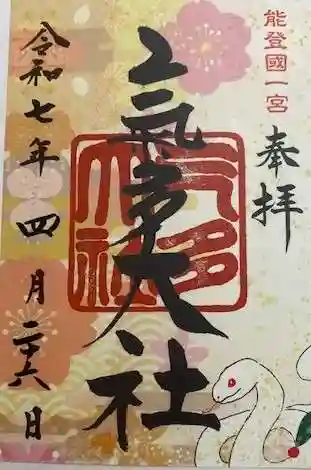 能登國一宮
奉拝
氣多大社
氣多大社
令和七年四月二十六日